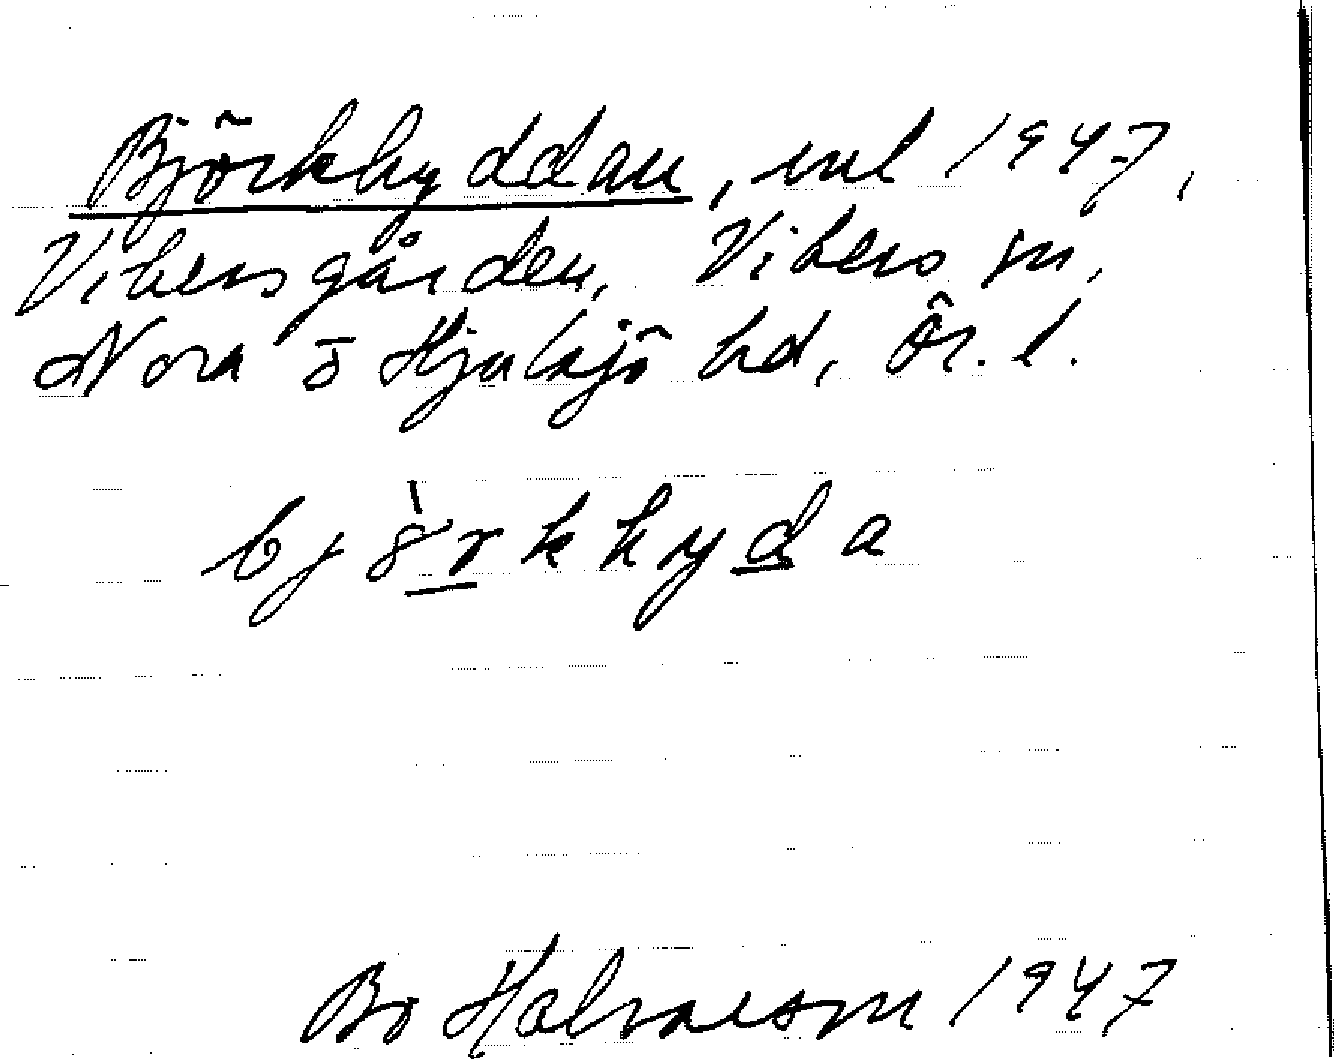 Björkhyddan, 1947,
Vikersgården, Vikers sn,
Nora o Hjulsjö hd, Ör. l.
björkhyda
Bo Halvarson 1947